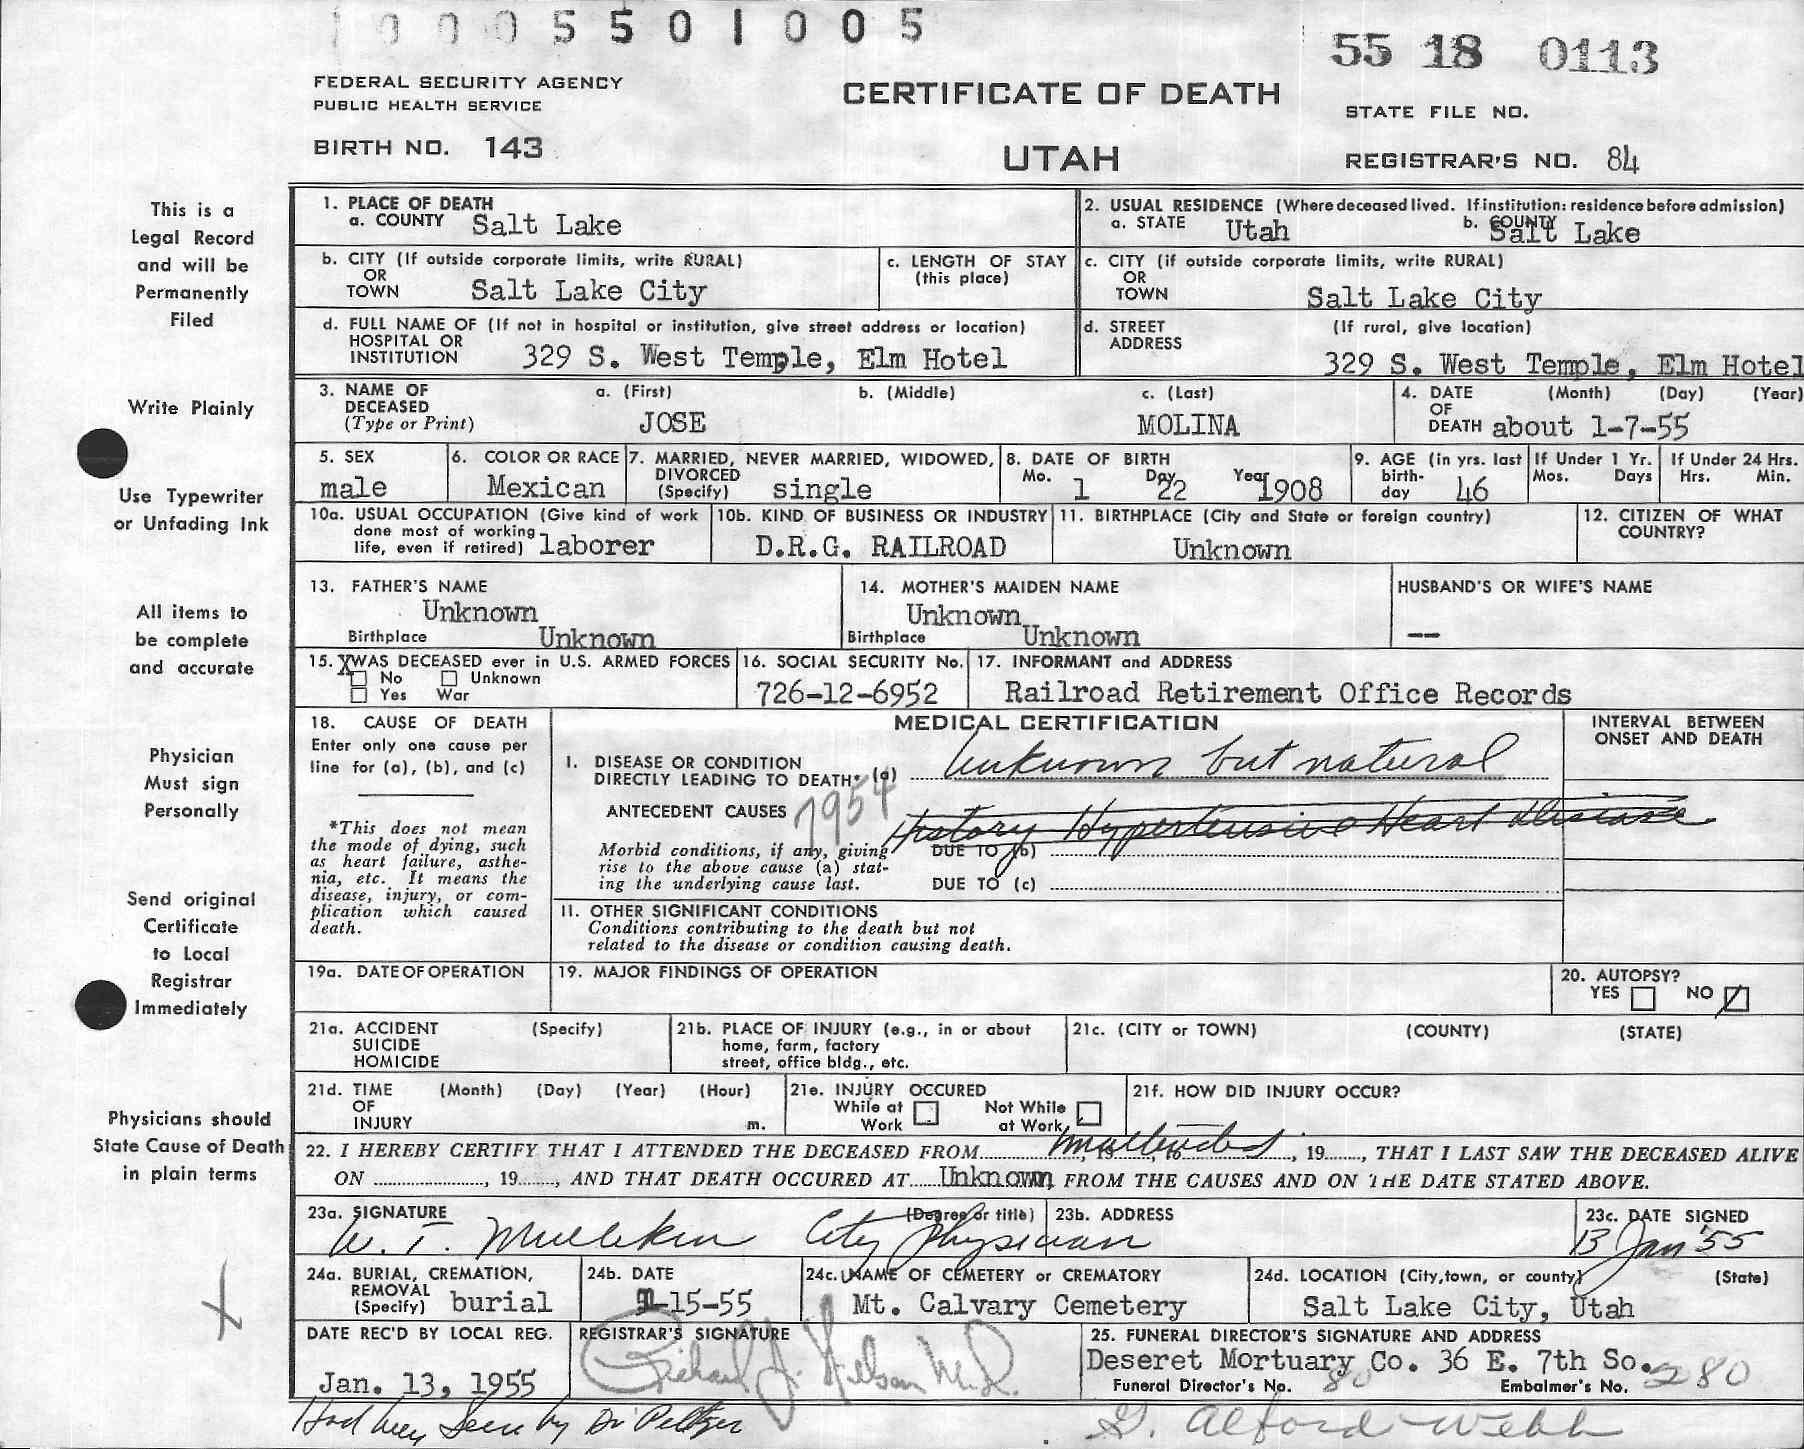 1 0 0 0 5 5 0 1 0 0 5
55 18 0113
FEDERAL SECURITY AGENCY
PUBLIC HEALTH SERVICE
CERTIFICATE OF DEATH
STATE FILE NO.
BIRTH NO. 143
UTAH
REGISTRAR'S NO. 84
This is a
Legal Record
and will be
Permanently
Filed
Write Plainly
Use Typewriter
or Unfading Ink
All items to
be complete
and accurate
Physician
Must sign
Personally
Send original
Certificate
to Local
Registrar
Immediately
Physicians should
State Cause of Death
in plain terms
1. PLACE OF DEATH
a. COUNTY Salt Lake
2. USUAL RESIDENCE (Where deceased lived. If institution: residence before admission)
a. STATE Utah b. COUNTY Salt Lake
b. CITY (If outside corporate limits, write RURAL)
OR
TOWN Salt Lake City
c. LENGTH OF STAY
(this place)
c. CITY (if outside corporate limits, write RURAL)
OR
TOWN Salt Lake City
d. FULL NAME OF (If not in hospital or institution, give street address or location)
HOSPITAL OR
INSTITUTION 329 S. West Temple, Elm Hotel
d. STREET (If rural, give location)
ADDRESS
329 S. West Temple, Elm Hotel
3. NAME OF a. (First) b. (Middle) c. (Last)
DECEASED
(Type or Print) JOSE MOLINA
4. DATE (Month) (Day) (Year)
OF
DEATH about 1-7-55
5. SEX
male
6. COLOR OR RACE
Mexican
7. MARRIED, NEVER MARRIED, WIDOWED,
DIVORCED
(Specify) single
8. DATE OF BIRTH
Mo. 1 Day 22 Year 1908
9. AGE (in yrs. last
birth-
day 46
If Under 1 Yr.
Mos. Days
If Under 24 Hrs.
Hrs. Min.
10a. USUAL OCCUPATION (Give kind of work
done most of working
life, even if retired) laborer
10b. KIND OF BUSINESS OR INDUSTRY
D.R.G. RAILROAD
11. BIRTHPLACE (City and State or foreign country)
Unknown
12. CITIZEN OF WHAT
COUNTRY?
13. FATHER'S NAME
Unknown
Birthplace Unknown
14. MOTHER'S MAIDEN NAME
Unknown
Birthplace Unknown
HUSBAND'S OR WIFE'S NAME
--
15. X WAS DECEASED ever in U.S. ARMED FORCES
No Unknown
Yes War
16. SOCIAL SECURITY No.
726-12-6952
17. INFORMANT and ADDRESS
Railroad Retirement Office Records
18. CAUSE OF DEATH
Enter only one cause per
line for (a), (b), and (c)
*This does not mean
the mode of dying, such
as heart failure, asthe-
nia, etc. It means the
disease, injury, or com-
plication which caused
death.
MEDICAL CERTIFICATION
INTERVAL BETWEEN
ONSET AND DEATH
I. DISEASE OR CONDITION
DIRECTLY LEADING TO DEATH* (a) Unknown but natural
ANTECEDENT CAUSES 7954
History Hypertensive Heart disease
Morbid conditions, if any, giving DUE TO (b)
rise to the above cause (a) stat-
ing the underlying cause last. DUE TO (c)
II. OTHER SIGNIFICANT CONDITIONS
Conditions contributing to the death but not
related to the disease or condition causing death.
19a. DATE OF OPERATION
19. MAJOR FINDINGS OF OPERATION
20. AUTOPSY?
YES NO
21a. ACCIDENT (Specify)
SUICIDE
HOMICIDE
21b. PLACE OF INJURY (e.g., in or about
home, farm, factory
street, office bldg., etc.
21c. (CITY or TOWN) (COUNTY) (STATE)
21d. TIME (Month) (Day) (Year) (Hour)
OF
INJURY m.
21e. INJURY OCCURED
While at Work Not While at Work
21f. HOW DID INJURY OCCUR?
22. I HEREBY CERTIFY THAT I ATTENDED THE DECEASED FROM unattended, 19......, THAT I LAST SAW THE DECEASED ALIVE
ON ............, 19......, AND THAT DEATH OCCURED AT Unknown, FROM THE CAUSES AND ON THE DATE STATED ABOVE.
23a. SIGNATURE (Degree or title)
W. T. Mullekin City Physician
23b. ADDRESS
23c. DATE SIGNED
13 Jan '55
24a. BURIAL, CREMATION,
REMOVAL
(Specify) burial
24b. DATE
1-15-55
24c. NAME OF CEMETERY or CREMATORY
Mt. Calvary Cemetery
24d. LOCATION (City, town, or county) (State)
Salt Lake City, Utah
DATE REC'D BY LOCAL REG.
Jan. 13, 1955
REGISTRAR'S SIGNATURE
Richard J. Nelson M.D.
25. FUNERAL DIRECTOR'S SIGNATURE AND ADDRESS
Deseret Mortuary Co. 36 E. 7th So.
Funeral Director's No. 80 Embalmer's No. 280
Had been Seen by Dr Peltzer
G. Alford Webb